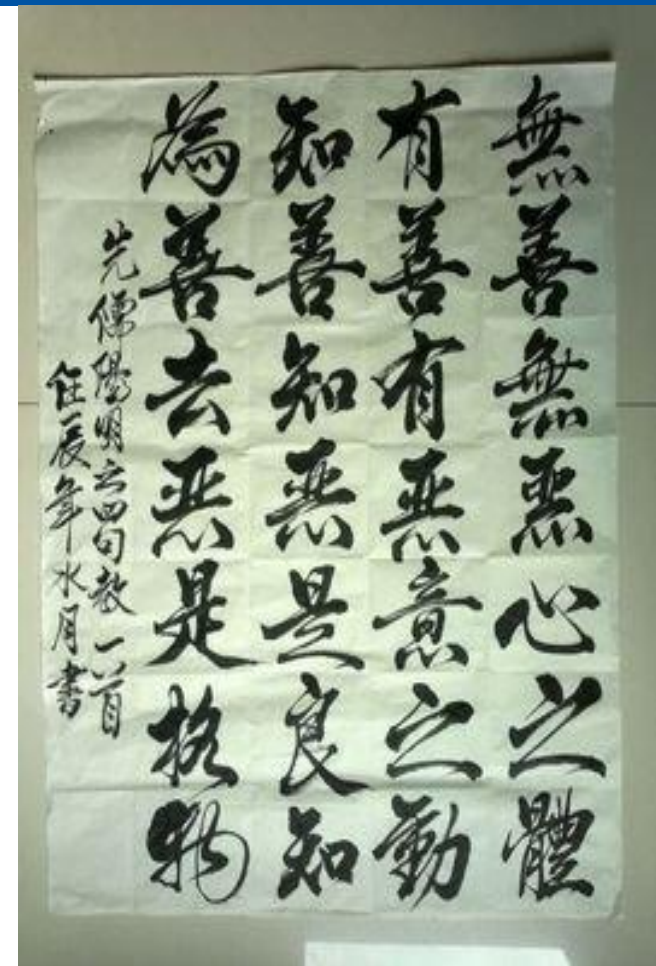 無善無惡心之體
有善有惡意之動
知善知惡是良知
為善去惡是格物
先儒陽明之四句教一首
壬辰年水月書